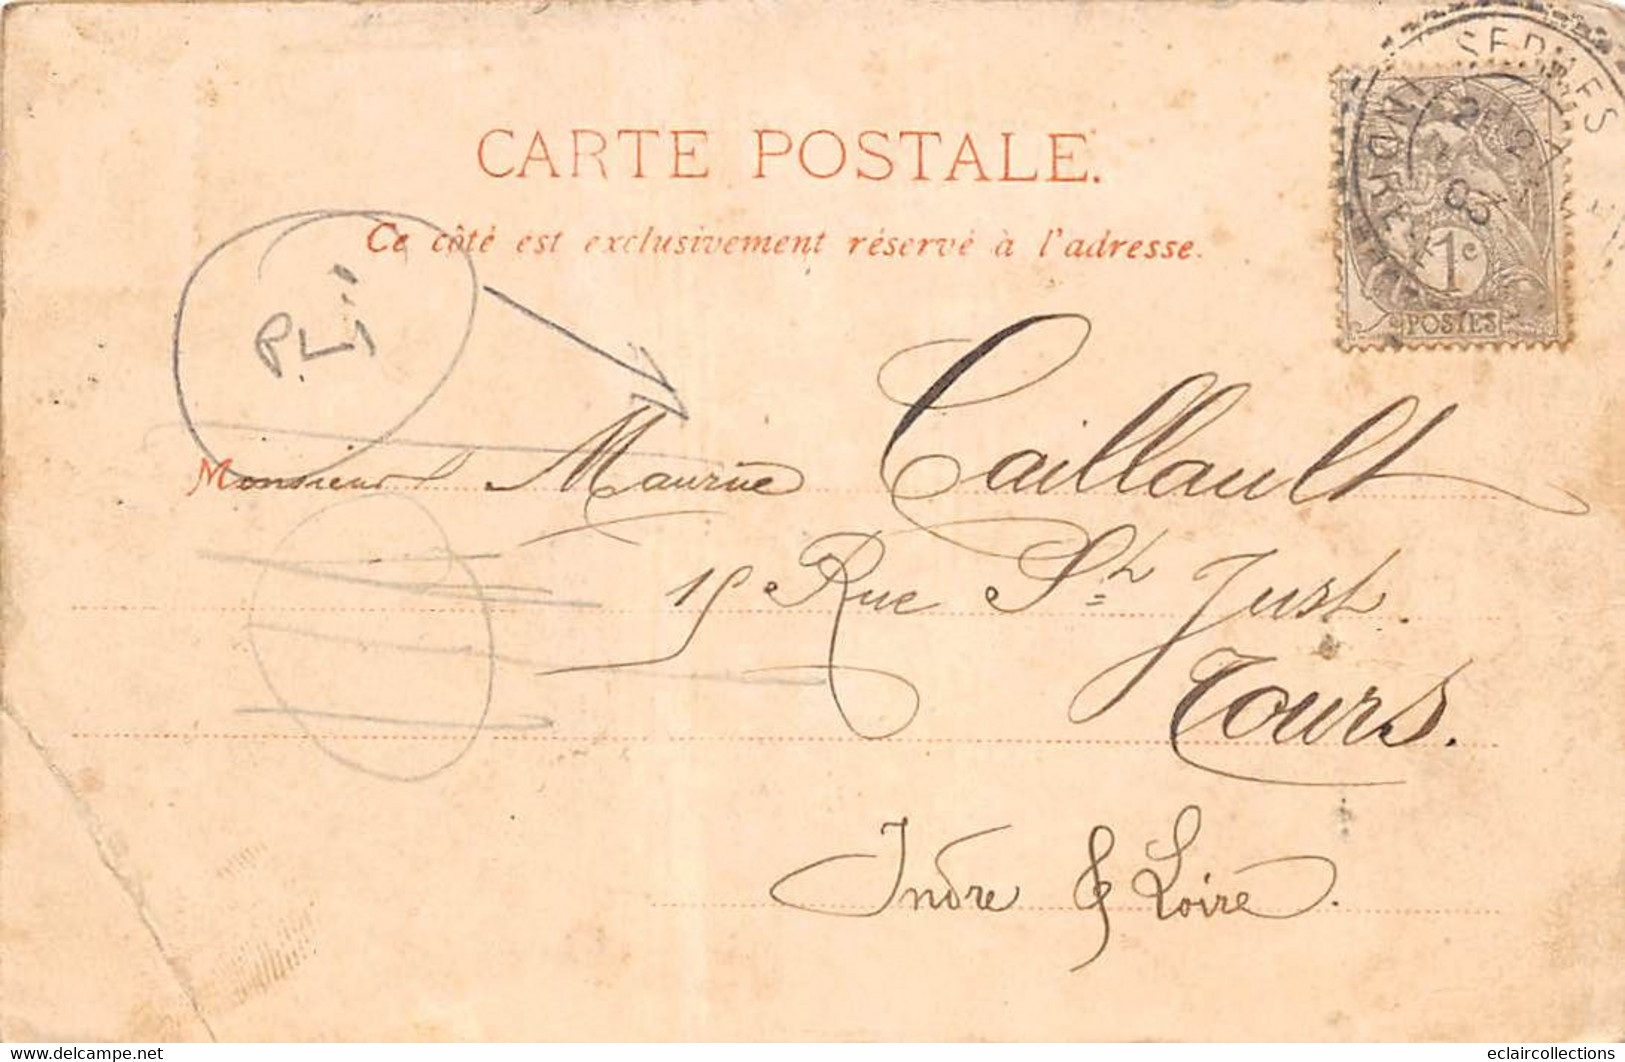 CARTE POSTALE.
Ce côté est exclusivement réservé à l'adresse.
PLi
Monsieur Maurice Caillault
15 Rue St Just.
Tours.
Indre & Loire.
1c
POSTES
03
eclaircollections